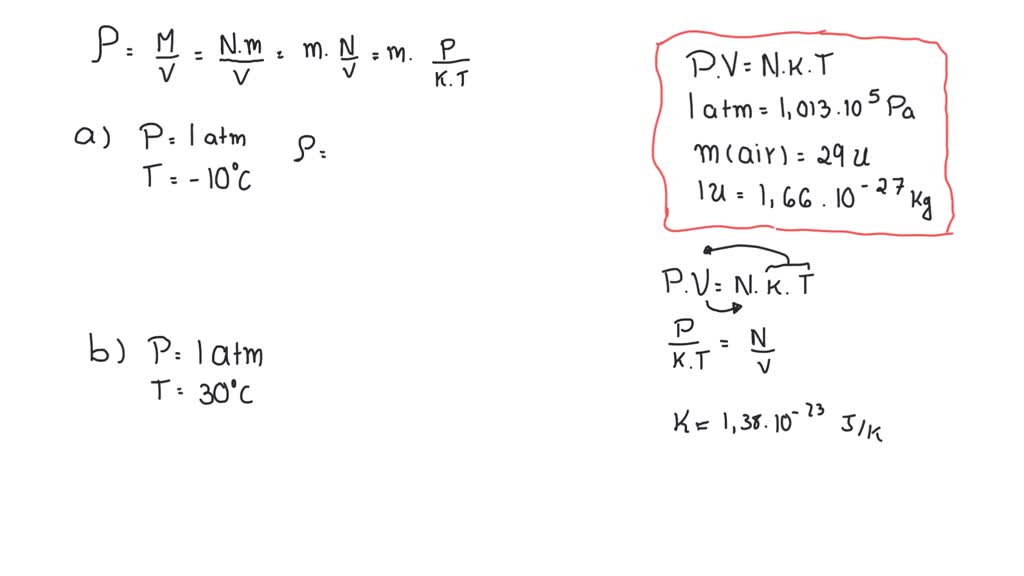 ρ = M/V = N.m/V = m. N/V = m. P/K.T
a) P = 1 atm ρ =
T = -10°C
b) P = 1 atm
T = 30°C
P.V = N.K.T
1 atm = 1,013.10⁵ Pa
m(air) = 29 u
1u = 1,66.10⁻²⁷ Kg
P.V = N.K.T
P/K.T = N/V
K = 1,38.10⁻²³ J/K